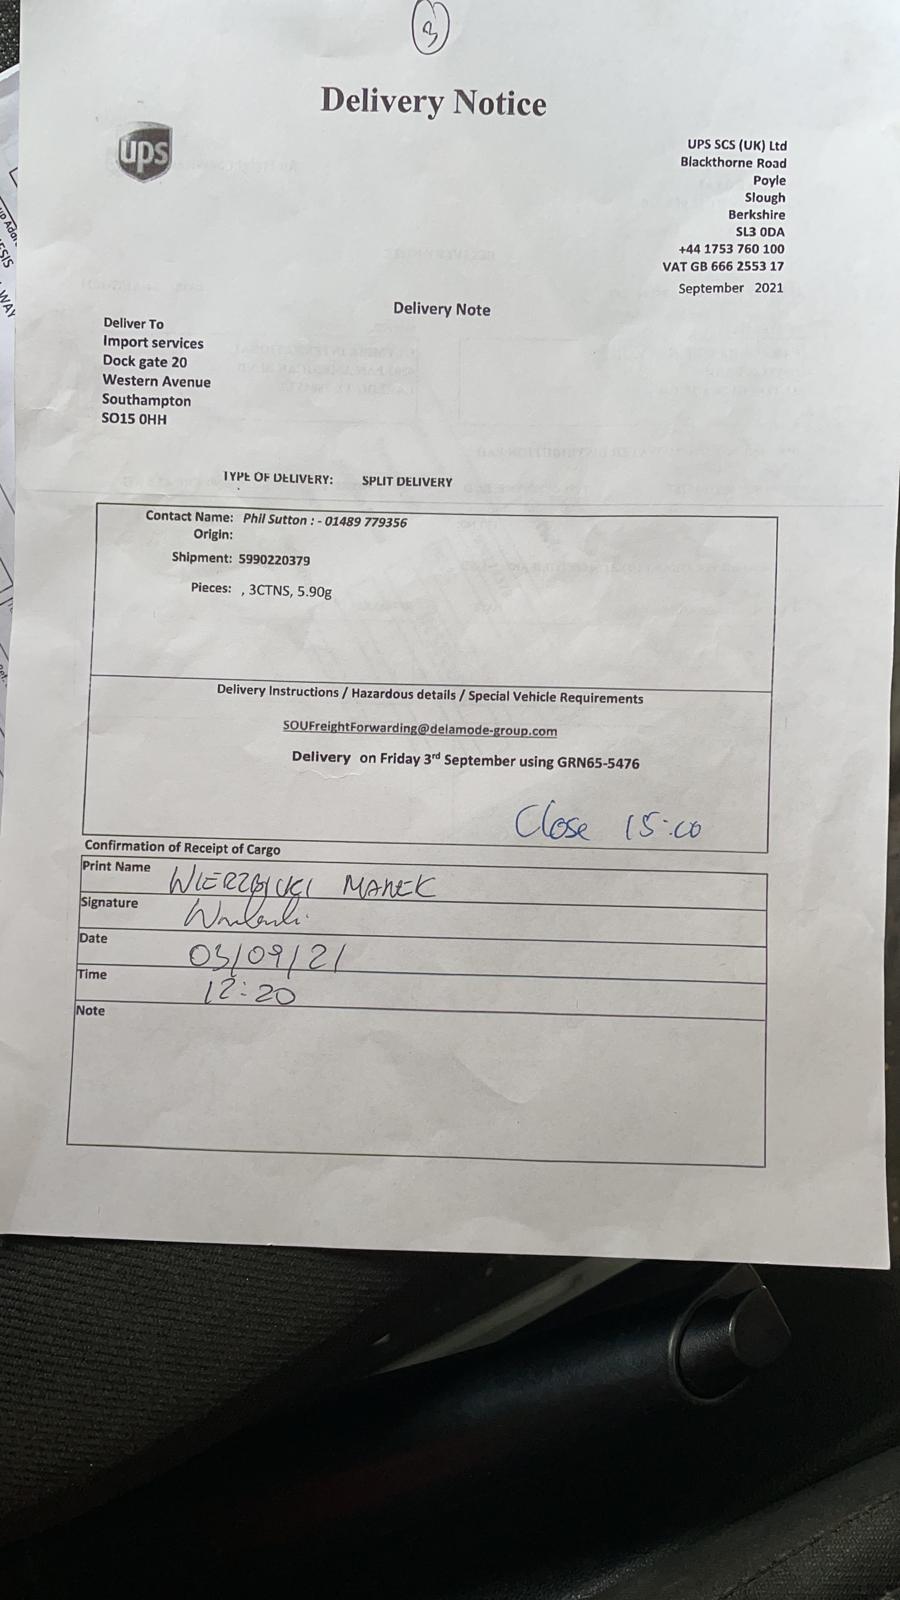 3
Delivery Notice
ups
UPS SCS (UK) Ltd
Blackthorne Road
Poyle
Slough
Berkshire
SL3 0DA
+44 1753 760 100
VAT GB 666 2553 17
September 2021
Delivery Note
Deliver To
Import services
Dock gate 20
Western Avenue
Southampton
SO15 0HH
TYPE OF DELIVERY: SPLIT DELIVERY
Contact Name: Phil Sutton : - 01489 779356
Origin:
Shipment: 5990220379
Pieces: , 3CTNS, 5.90g
Delivery Instructions / Hazardous details / Special Vehicle Requirements
SOUFreightForwarding@delamode-group.com
Delivery on Friday 3rd September using GRN65-5476
Close 15:00
Confirmation of Receipt of Cargo
Print Name WIERZBICKI MAREK
Signature
Date 03/09/21
Time 12:20
Note